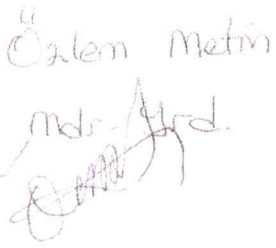 Özlem Metin
Mdr. Yrd.